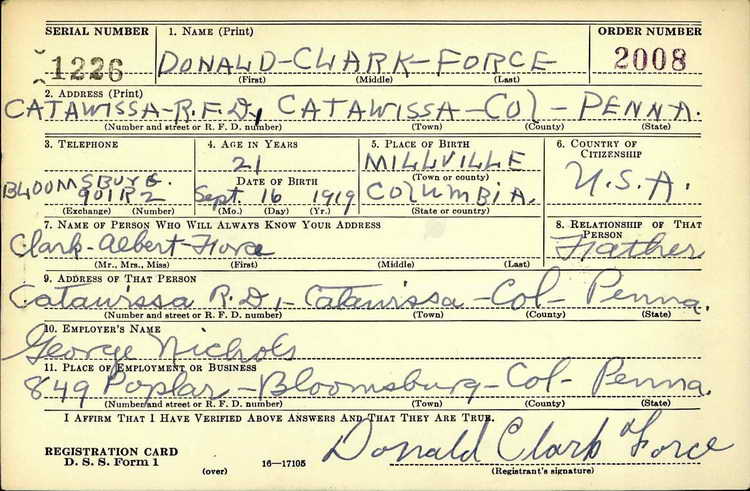 SERIAL NUMBER 1. NAME (Print) ORDER NUMBER
1226 DONALD-CLARK-FORCE 2008
(First) (Middle) (Last)
2. ADDRESS (Print)
CATAWISSA-R.F.D., CATAWISSA-COL-PENNA.
(Number and street or R. F. D. number) (Town) (County) (State)
3. TELEPHONE 4. AGE IN YEARS 5. PLACE OF BIRTH 6. COUNTRY OF
CITIZENSHIP
21 MILLVILLE
DATE OF BIRTH (Town or county)
BLOOMSBURG. 901R2 Sept. 16 1919 COLUMBIA. U.S.A.
(Exchange) (Number) (Mo.) (Day) (Yr.) (State or country)
7. NAME OF PERSON WHO WILL ALWAYS KNOW YOUR ADDRESS 8. RELATIONSHIP OF THAT
PERSON
Clark-Albert-Force Father
(Mr., Mrs., Miss) (First) (Middle) (Last)
9. ADDRESS OF THAT PERSON
Catawissa R.D.,-Catawissa-Col-Penna.
(Number and street or R. F. D. number) (Town) (County) (State)
10. EMPLOYER'S NAME
George Nichols
11. PLACE OF EMPLOYMENT OR BUSINESS
849 Poplar-Bloomsburg-Col-Penna.
(Number and street or R. F. D. number) (Town) (County) (State)
I AFFIRM THAT I HAVE VERIFIED ABOVE ANSWERS AND THAT THEY ARE TRUE.
REGISTRATION CARD Donald Clark Force
D. S. S. Form 1 (over) 16—17105 (Registrant's signature)